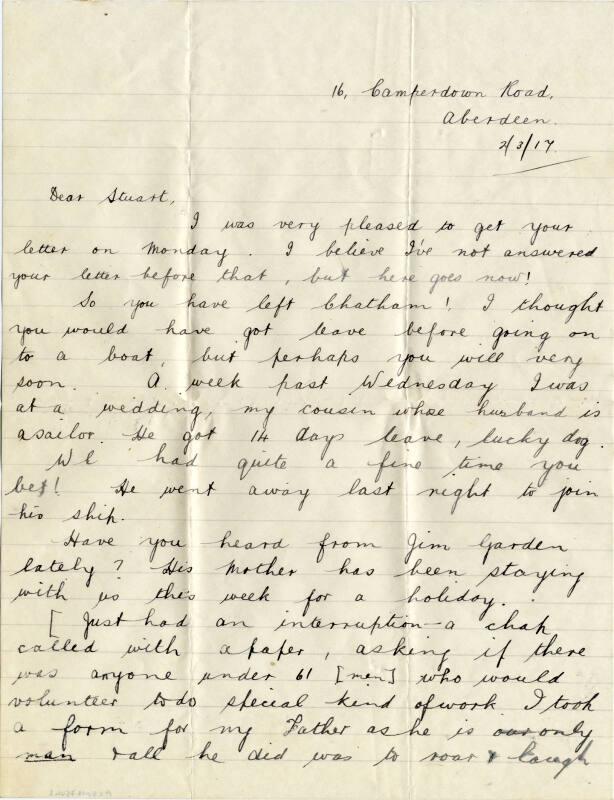 16, Camperdown Road,
Aberdeen.
2/3/17.
Dear Stuart,
I was very pleased to get your
letter on Monday. I believe I've not answered
your letter before that, but here goes now!
So you have left Chatham! I thought
you would have got leave before going on
to a boat, but perhaps you will very
soon. A week past Wednesday I was
at a wedding, my cousin whose husband is
a sailor. He got 14 days leave, lucky dog.
We had quite a fine time you
bet! He went away last night to join
his ship.
Have you heard from Jim Garden
lately? His Mother has been staying
with us this week for a holiday.
[ Just had an interruption – a chap
called with a paper, asking if there
was anyone under 61 [men] who would
volunteer to do special kind of work. I took
a form for my Father as he is our only
man & all he did was to roar & laugh